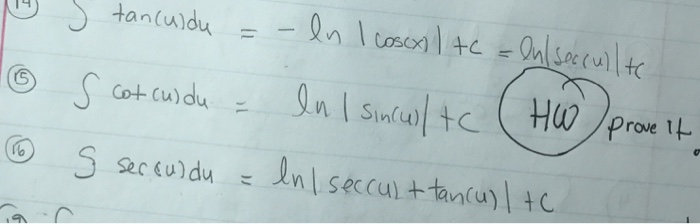 14 ∫ tan(u)du = - ln |cos(x)| +c = ln|sec(u)| +c
15 ∫ cot(u)du = ln | sin(u)| +c HW prove it.
16 ∫ sec(u)du = ln| sec(u) + tan(u)| +c